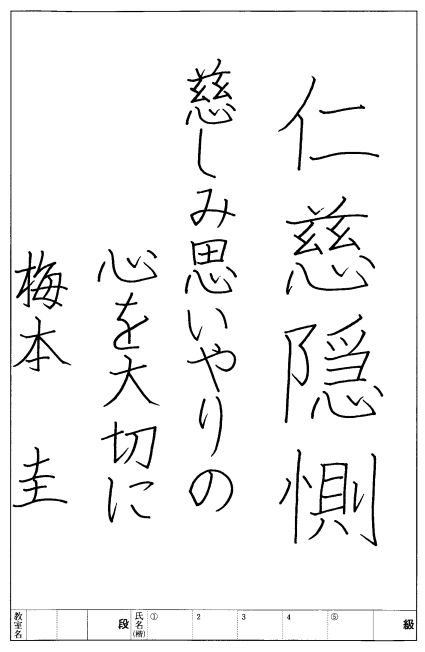 仁慈隠惻
慈しみ思いやりの
心を大切に
梅本 圭
級 ⑤ 4 3 2 ① 氏名(楷) 段 教室名